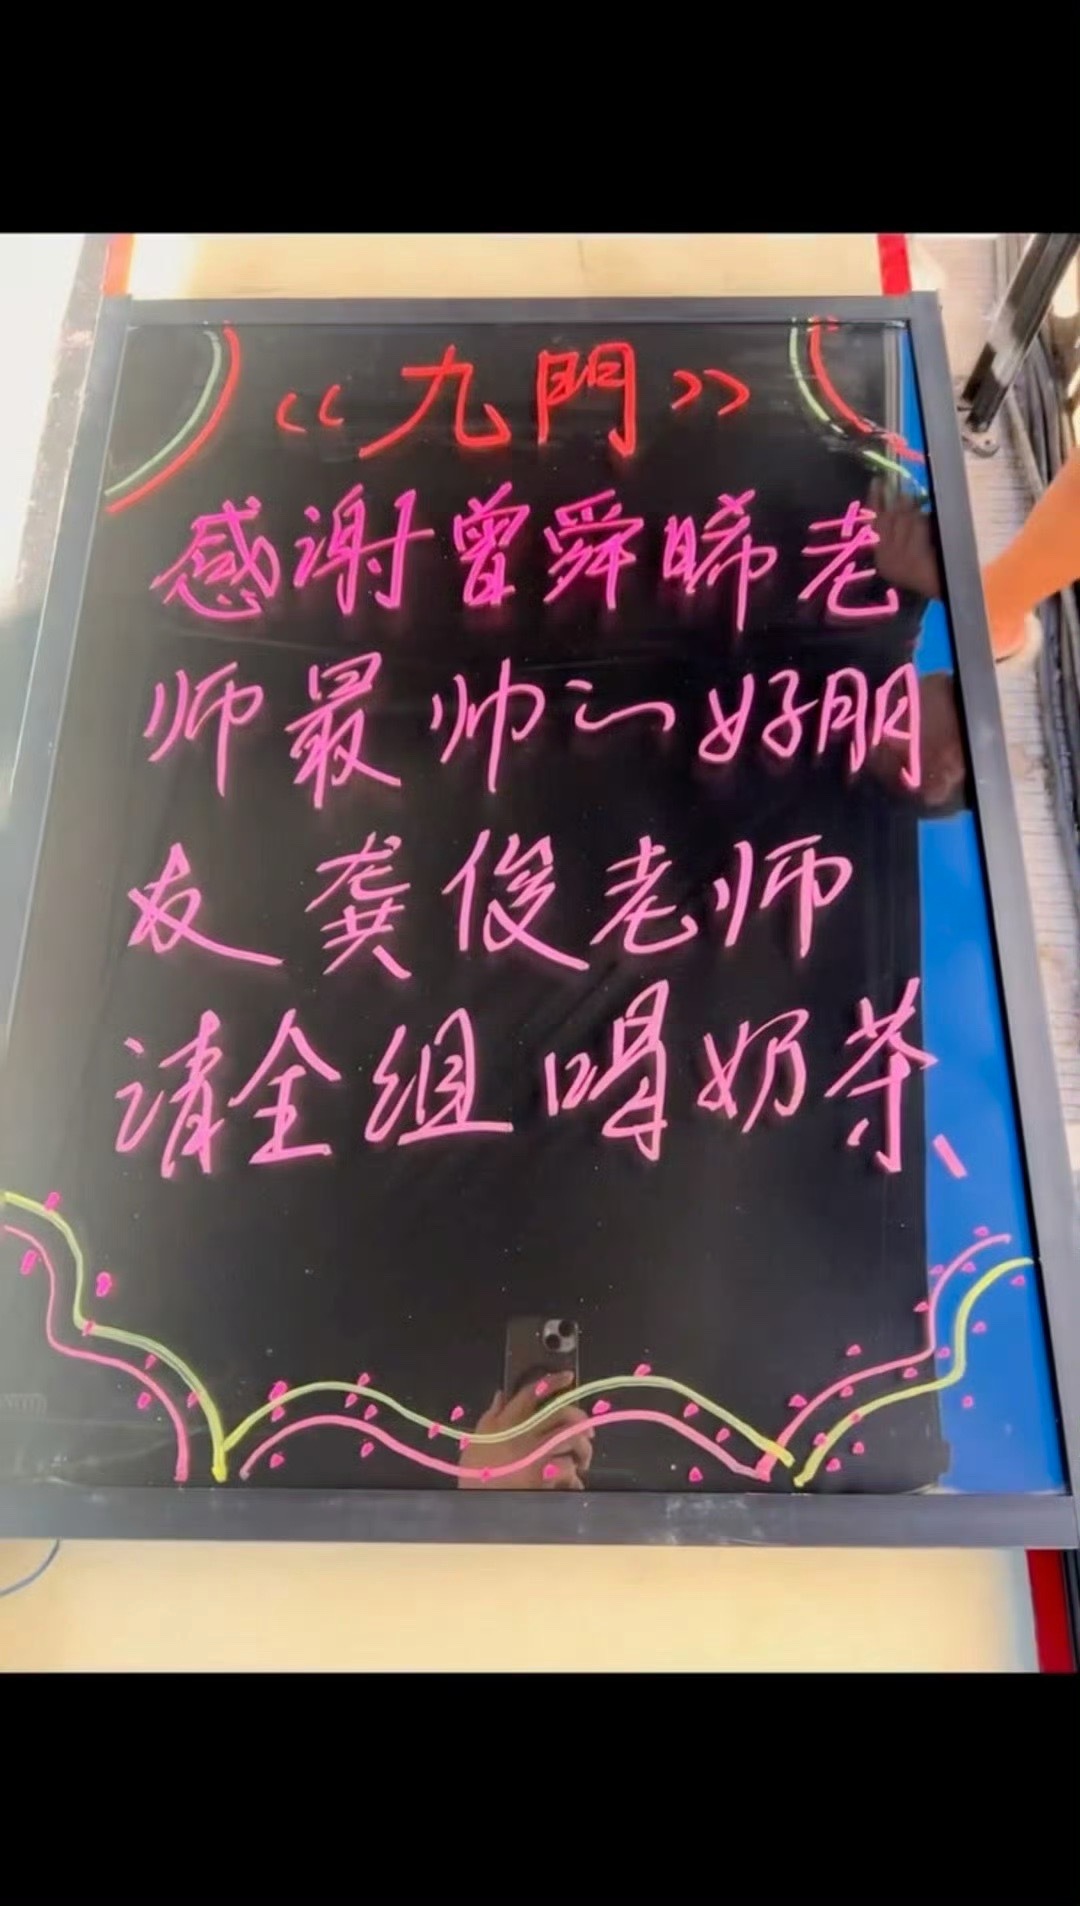 《九門》
感谢曾舜晞老
师最帅的好朋
友龚俊老师
请全组喝奶茶